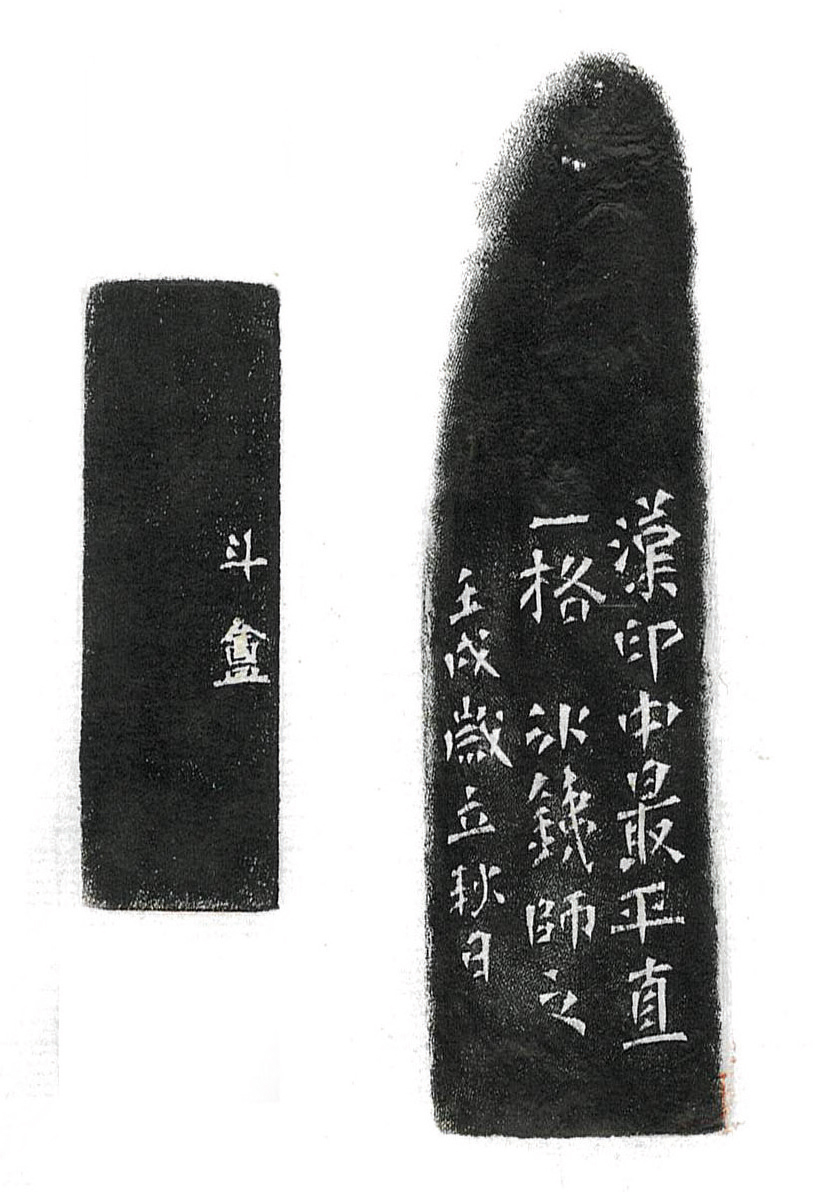 漢印中最平直
一格 冰鐵師之
壬戌歲立秋日
斗盦